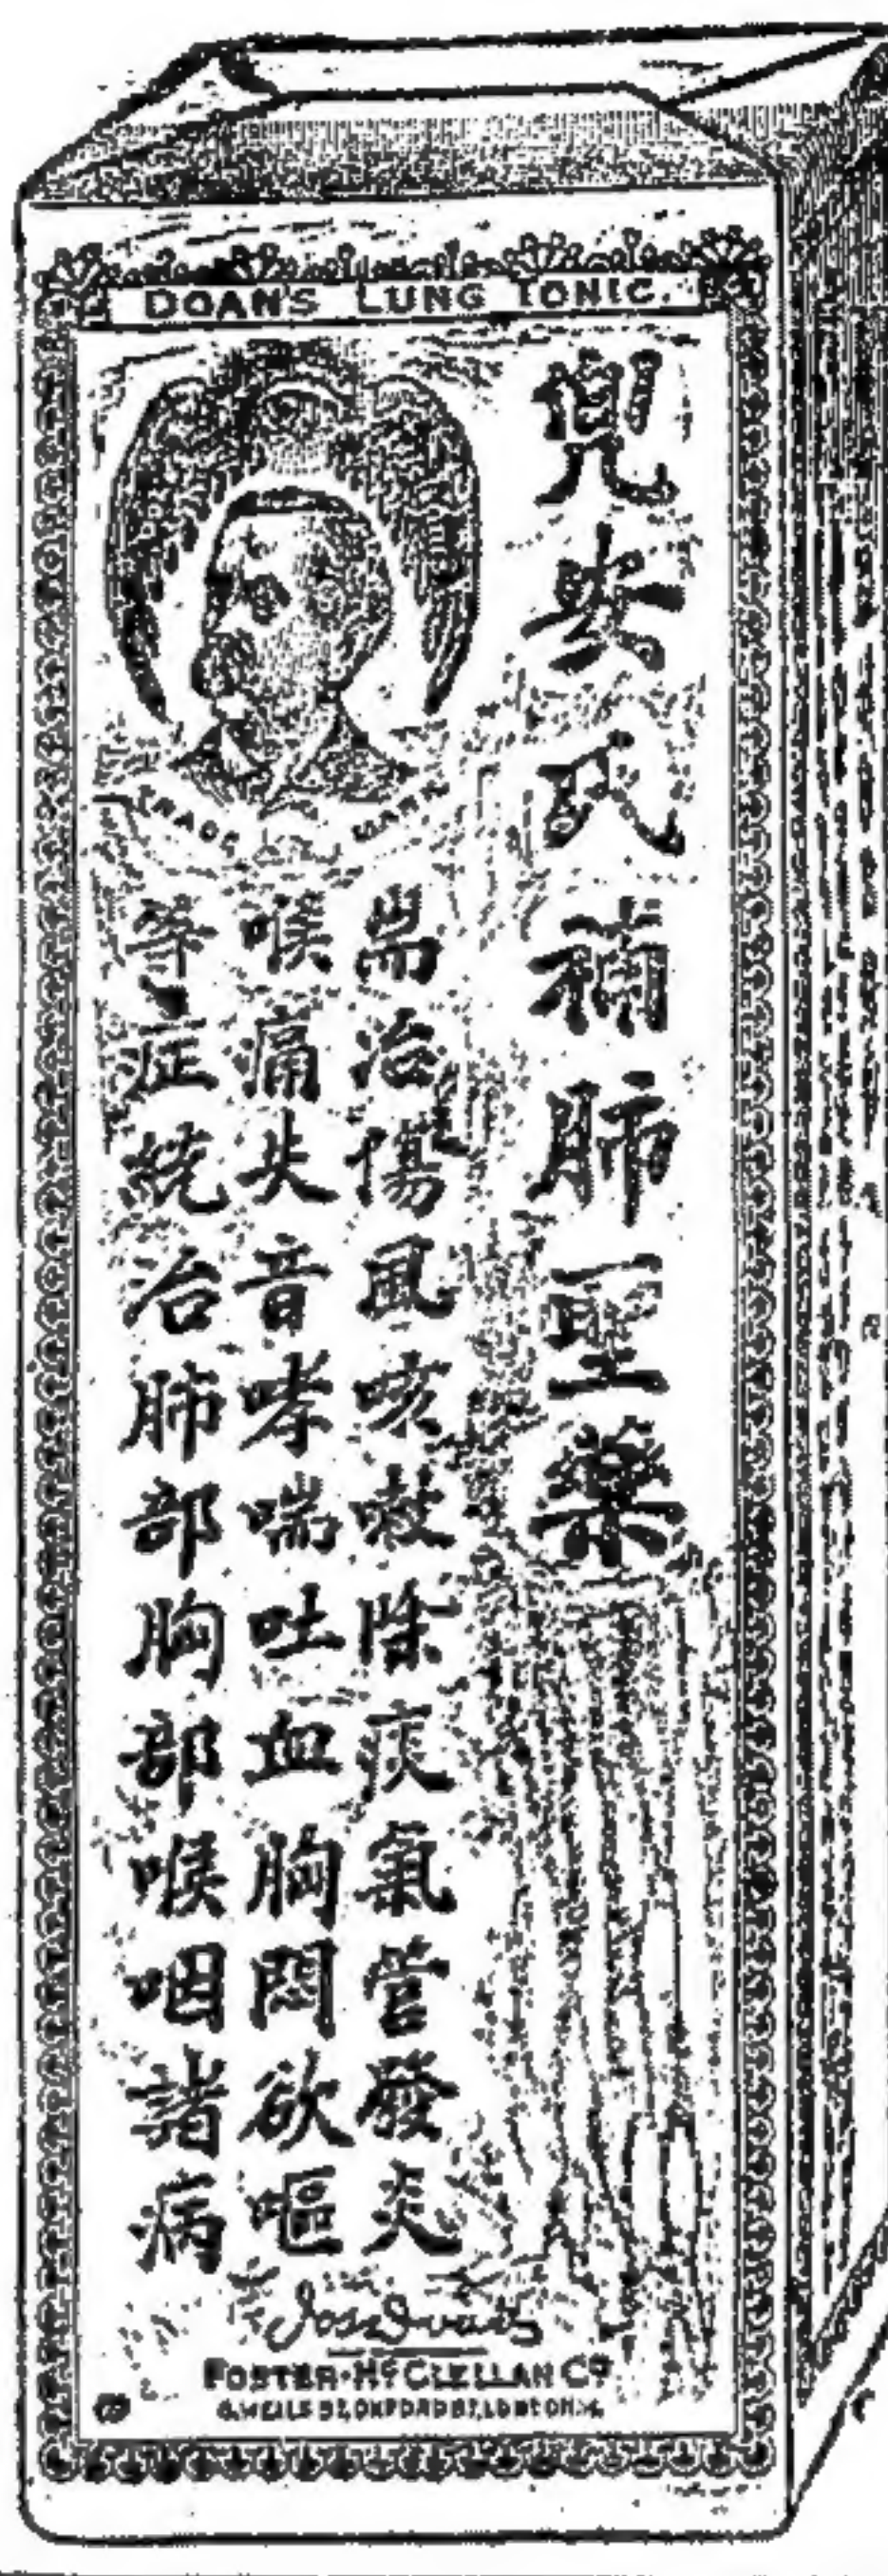 DOAN'S LUNG TONIC.
兜安氏補肺聖藥
TRADE MARK
耑治傷風咳嗽除痰氣管發炎
喉痛失音哮喘吐血胸悶欲嘔
等症統治肺部胸部喉咽諸病
FOSTER-McCLELLAN Co
8, WELLS ST, OXFORD ST, LONDON, W.